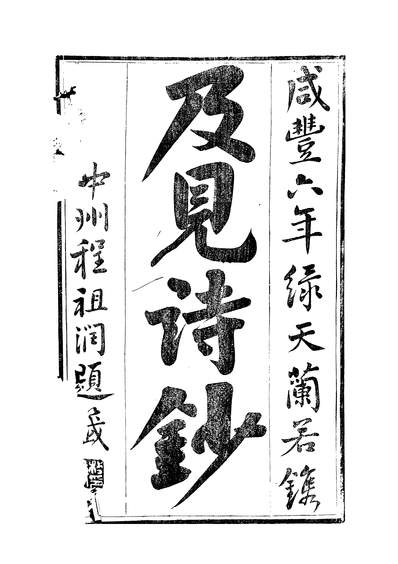 咸豐六年綠天蘭若鐫
及見詩鈔
中州程祖潤題